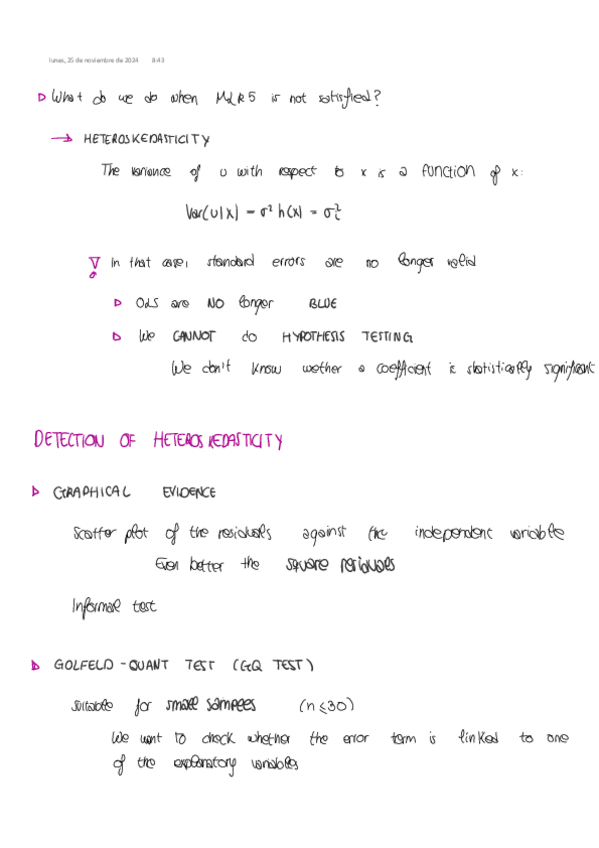 lunes, 25 de noviembre de 2024 8:43
What do we do when MLR5 is not satisfied?
→ HETEROSKEDASTICITY
The variance of u with respect to x is a function of x:
Var(u|x) = σ² h(x) = σᵢ²
In that case, standard errors are no longer valid
OLS are NO longer BLUE
We CANNOT do HYPOTHESIS TESTING
We don't know wether a coefficient is statistically significant
DETECTION OF HETEROSKEDASTICITY
GRAPHICAL EVIDENCE
Scatter plot of the residuals against the independent variable
Even better the square residuals
Informal test
GOLFELD-QUANT TEST (GQ TEST)
Suitable for small samples (n ≤ 30)
We want to check whether the error term is linked to one
of the explanatory variables